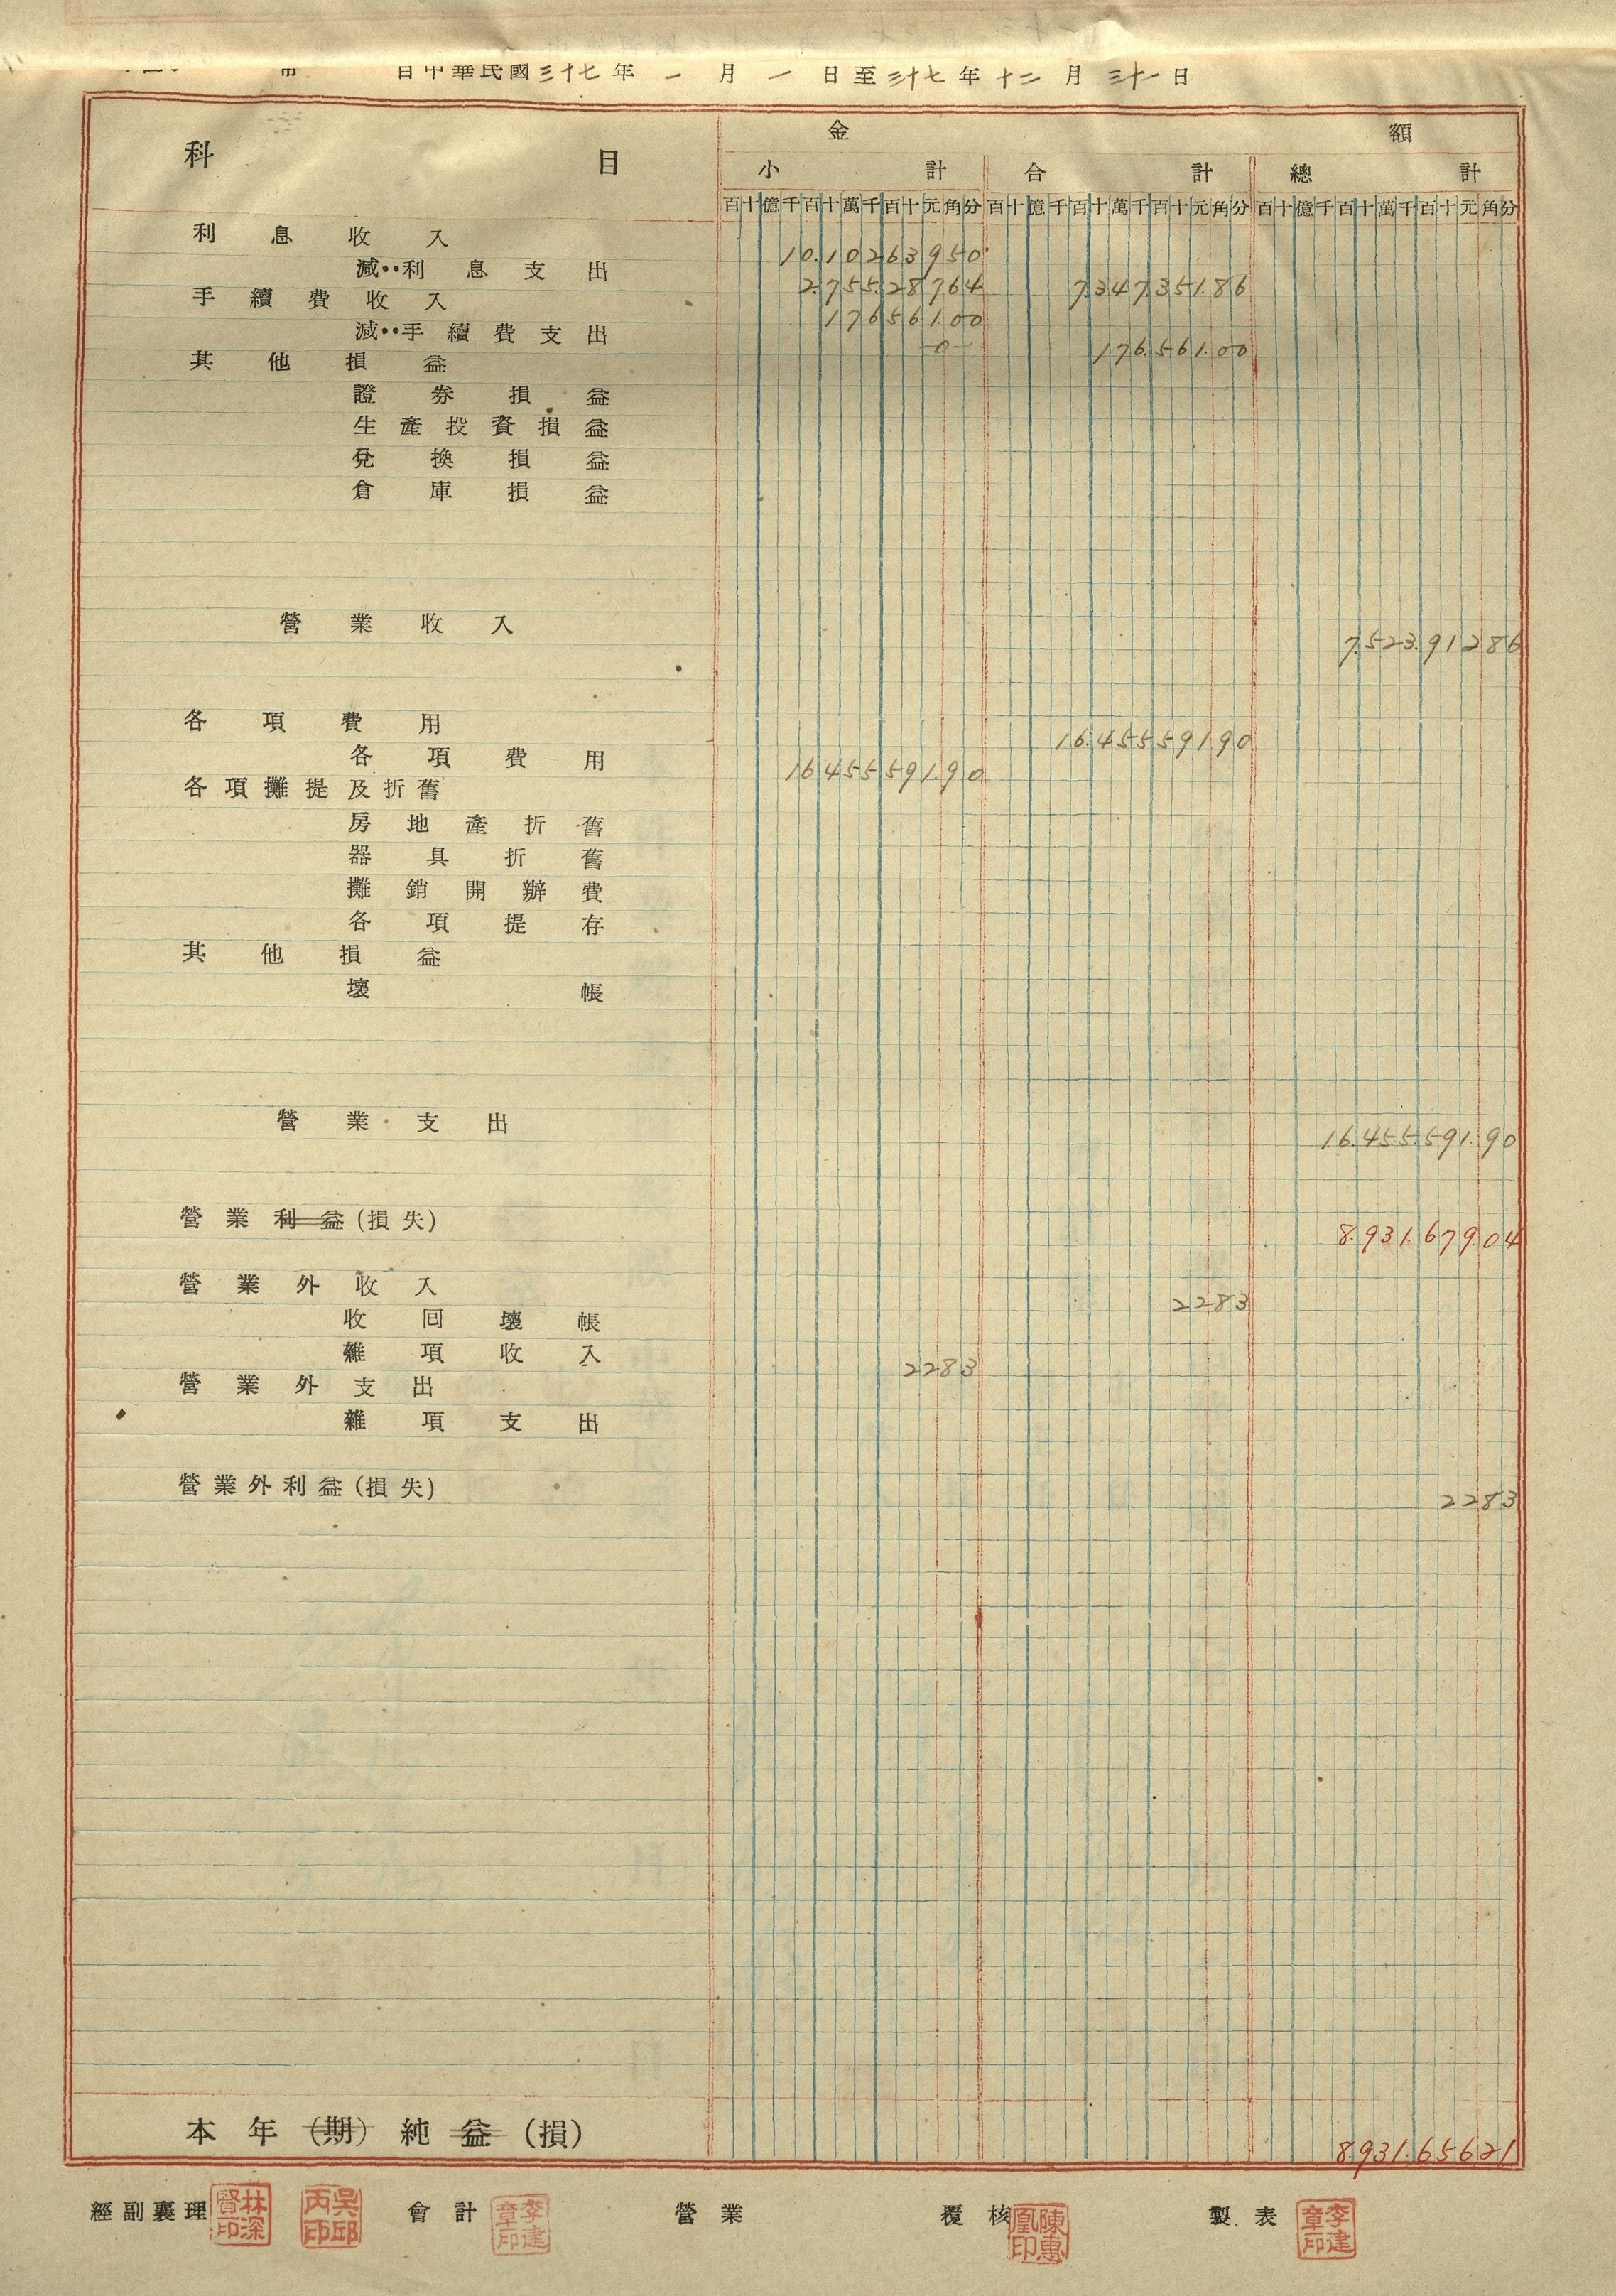 自中華民國三十七年一月一日至三十七年十二月三十一日
科目 金額
小計 合計 總計
百十億千百十萬千百十元角分 百十億千百十萬千百十元角分 百十億千百十萬千百十元角分
利息收入 10.10263950
減··利息支出 2.755.28764 7.347.351.86
手續費收入 176561.00
減··手續費支出 -0- 176.561.00
其他損益
證券損益
生產投資損益
兌換損益
倉庫損益
營業收入 7.523.91286
各項費用 16.455591.90
各項費用 16455591.90
各項攤提及折舊
房地產折舊
器具折舊
攤銷開辦費
各項提存
其他損益
壞帳
營業支出 16.455.591.90
營業利益(損失) 8.931.679.04
營業外收入 2283
收回壞帳
雜項收入 2283
營業外支出
雜項支出
營業外利益(損失) 2283
本年(期)純益(損) 8.931.65621
經副襄理 林深賢印 吳邱丙印 會計 李建章印 營業 覆核 陳惠凰印 製表 李建章印